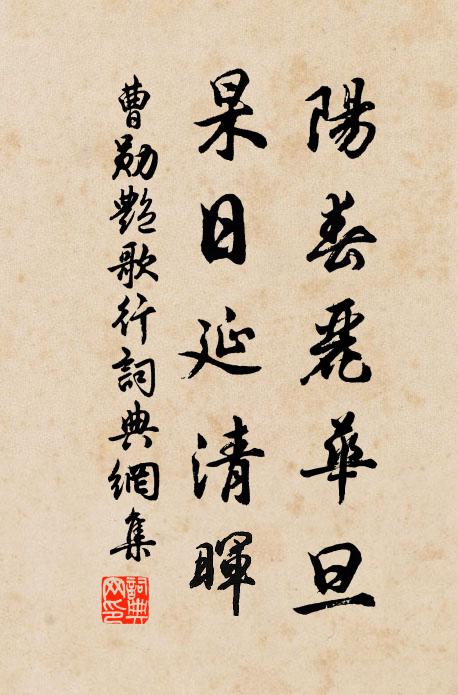 陽春麗華旦
杲日延清暉
曹勛艷歌行詞典網集
詞典網印